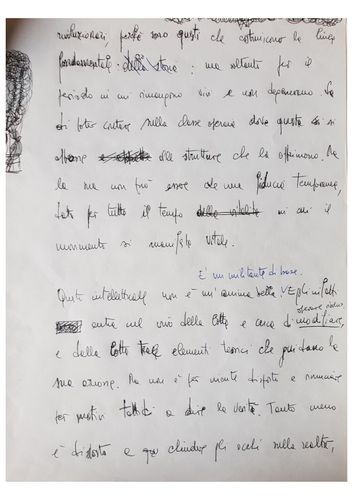 rivoluzionari, perché sono questi che costruiscono la linea
fondamentale della storia: ma soltanto per il
periodo in cui rimangono vivi e non degenerano. Sa
di poter contare sulla classe operaia dove questa si
oppone alle strutture che la opprimono. Ma
la sua non può essere che una fiducia temporanea,
data per tutto il tempo della vitalità in cui il
movimento si manifesta vitale.
È un militante di base.
Questo intellettuale non è un'anima bella. Egli infatti
entra nel vivo della lotta e cerca di modificare,
e dalla lotta trae elementi teorici che guidano la
sua azione. Ma non è per niente disposto a rinunciare
per motivi tattici a dire la verità. Tanto meno
è disposto a chiudere gli occhi sulla realtà,